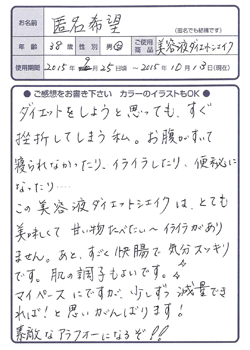 お名前
匿名希望
(匿名でも結構です)
年齢 38歳 性別 男・女 ご使用商品 美容液ダイエットシェイク
使用期間 2015年8月25日頃 ～ 2015年10月13日(現在)
●ご感想をお書き下さい カラーのイラストもOK●
ダイエットをしようと思っても、すぐ
挫折してしまう私。お腹がすいて
寝られなかったり、イライラしたり、便秘に
なったり....
この美容液ダイエットシェイクは、とても
美味しくて 甘い物たべたい～イライラがあり
ません。あと、すごく快腸で気分スッキリ
です。肌の調子もよいです。
マイペースにですが、少しずつ減量でき
れば!と思いがんばります!
素敵なアラフォーになるぞ!!